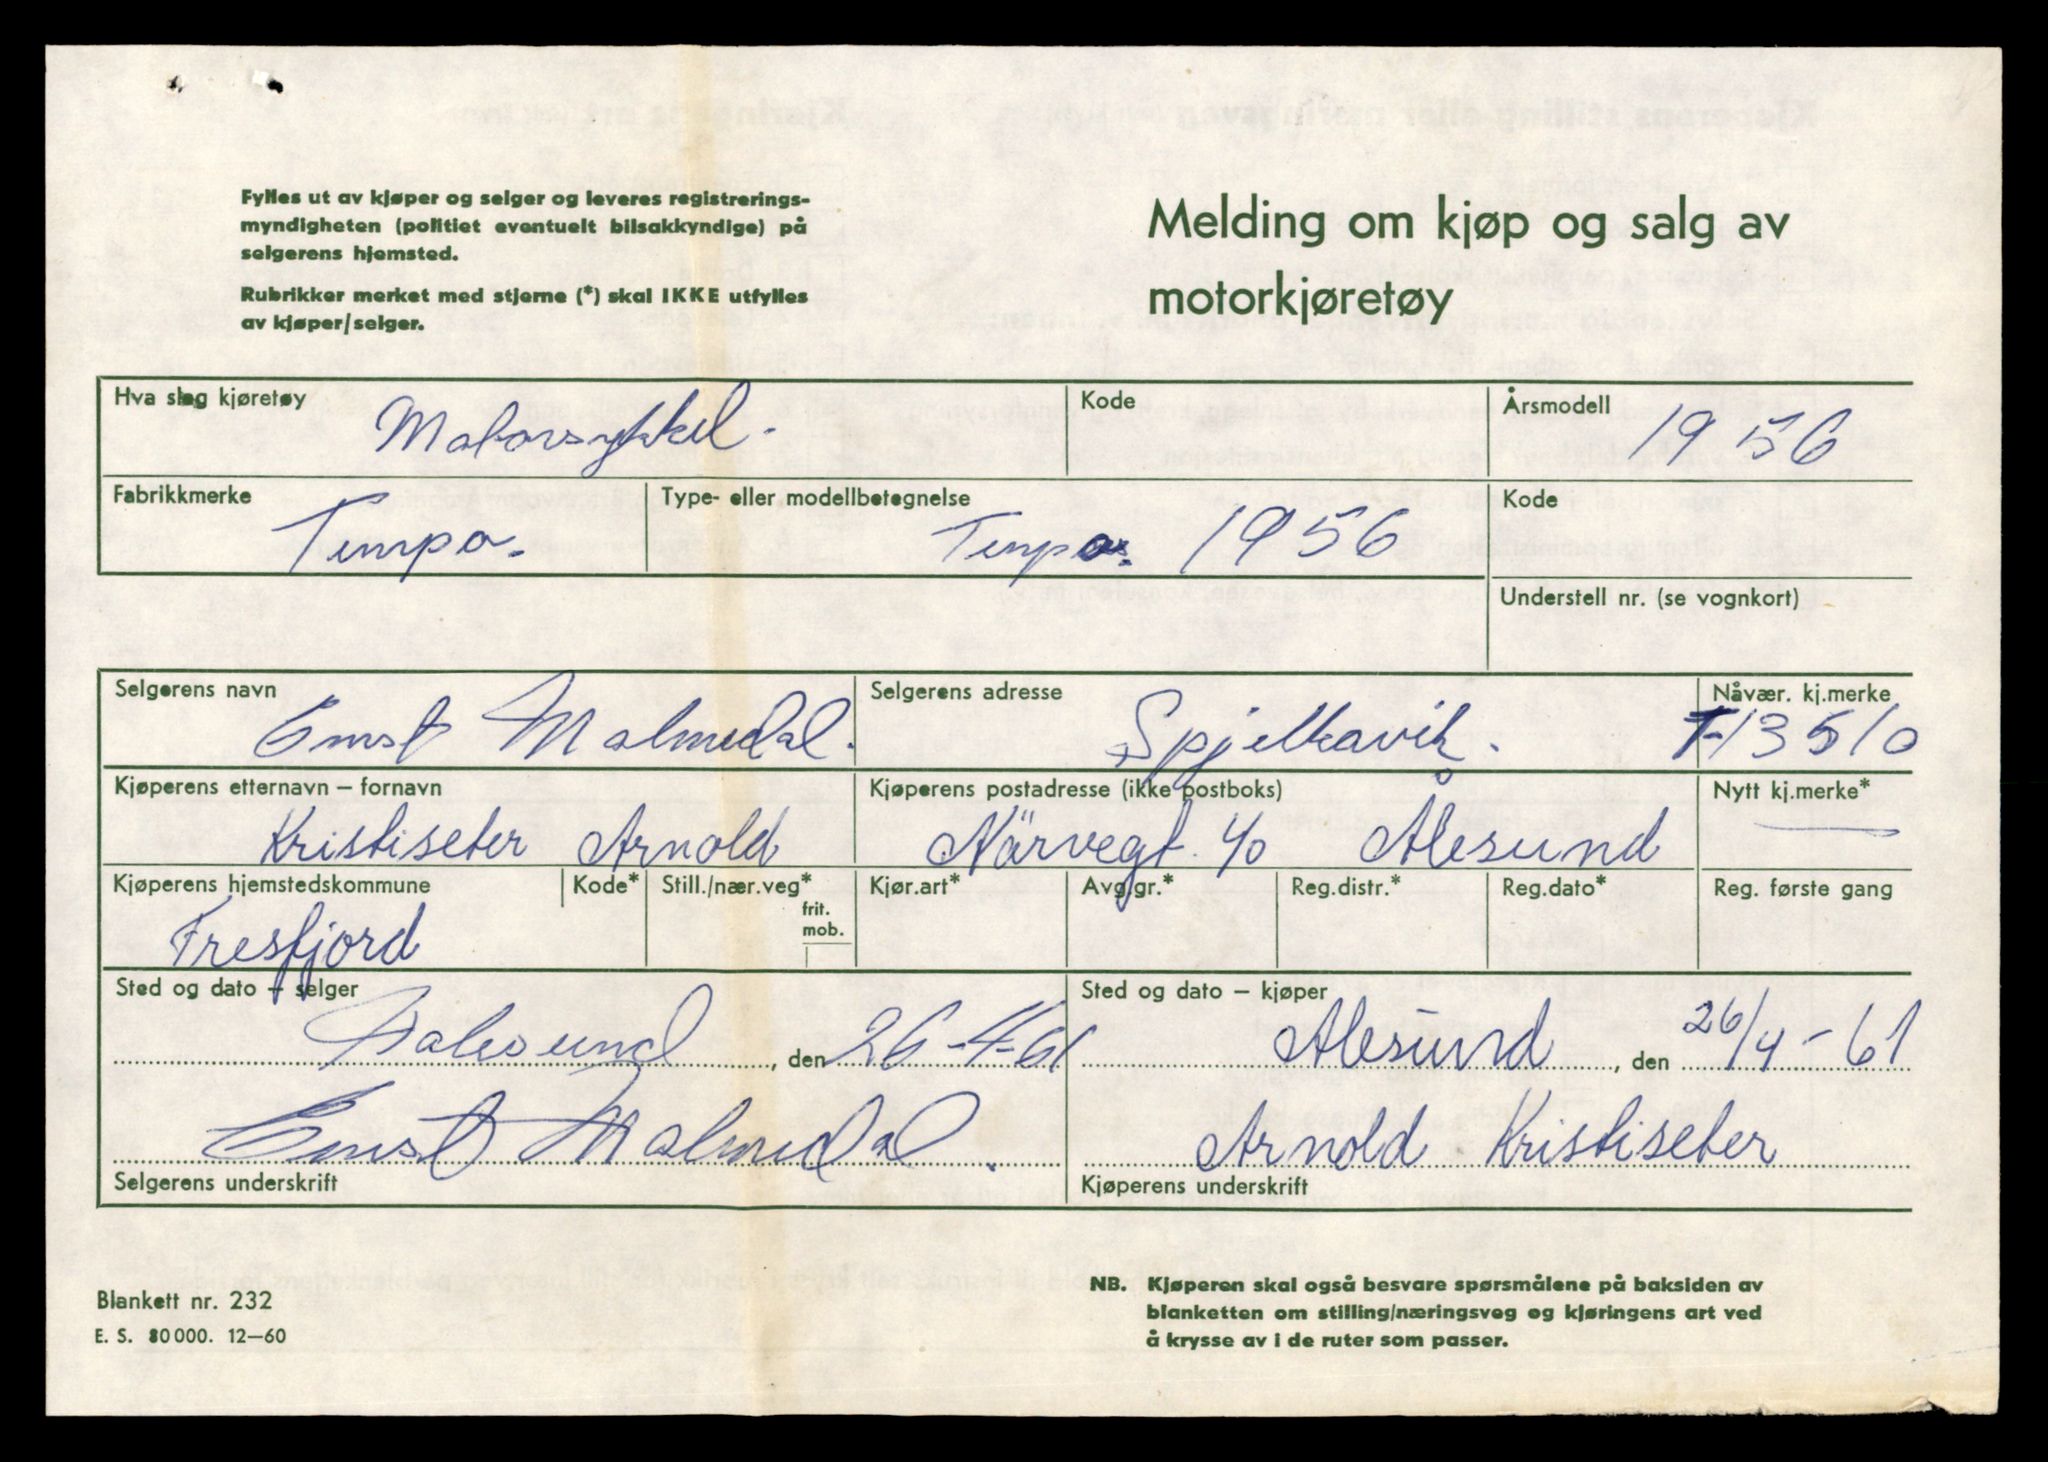 Fylles ut av kjøper og selger og leveres registrerings-
myndigheten (politiet eventuelt bilsakkyndige) på
selgerens hjemsted.
Rubrikker merket med stjerne (*) skal IKKE utfylles
av kjøper/selger.
Melding om kjøp og salg av
motorkjøretøy
Hva slag kjøretøy
Motorsykkel.
Kode
Årsmodell
1956
Fabrikkmerke
Tempo.
Type- eller modellbetegnelse
Tempo. 1956
Kode
Understell nr. (se vognkort)
Selgerens navn
Ernst Malmedal.
Selgerens adresse
Spjelkavik.
Nåvær. kj.merke
T-13510
Kjøperens etternavn – fornavn
Kristiseter Arnold
Kjøperens postadresse (ikke postboks)
Nörvegt. 40 Ålesund
Nytt kj.merke*
Kjøperens hjemstedskommune
Fresfjord
Kode*
Still./nær.veg*
frit.
mob.
Kjør.art*
Avg.gr.*
Reg.distr.*
Reg.dato*
Reg. første gang
Sted og dato – selger
Aalesund, den 26-4-61
Sted og dato – kjøper
Alesund, den 26/4-61
Ernst Malmedal.
Selgerens underskrift
Arnold Kristiseter
Kjøperens underskrift
Blankett nr. 232
E. S. 80000. 12–60
NB. Kjøperen skal også besvare spørsmålene på baksiden av
blanketten om stilling/næringsveg og kjøringens art ved
å krysse av i de ruter som passer.